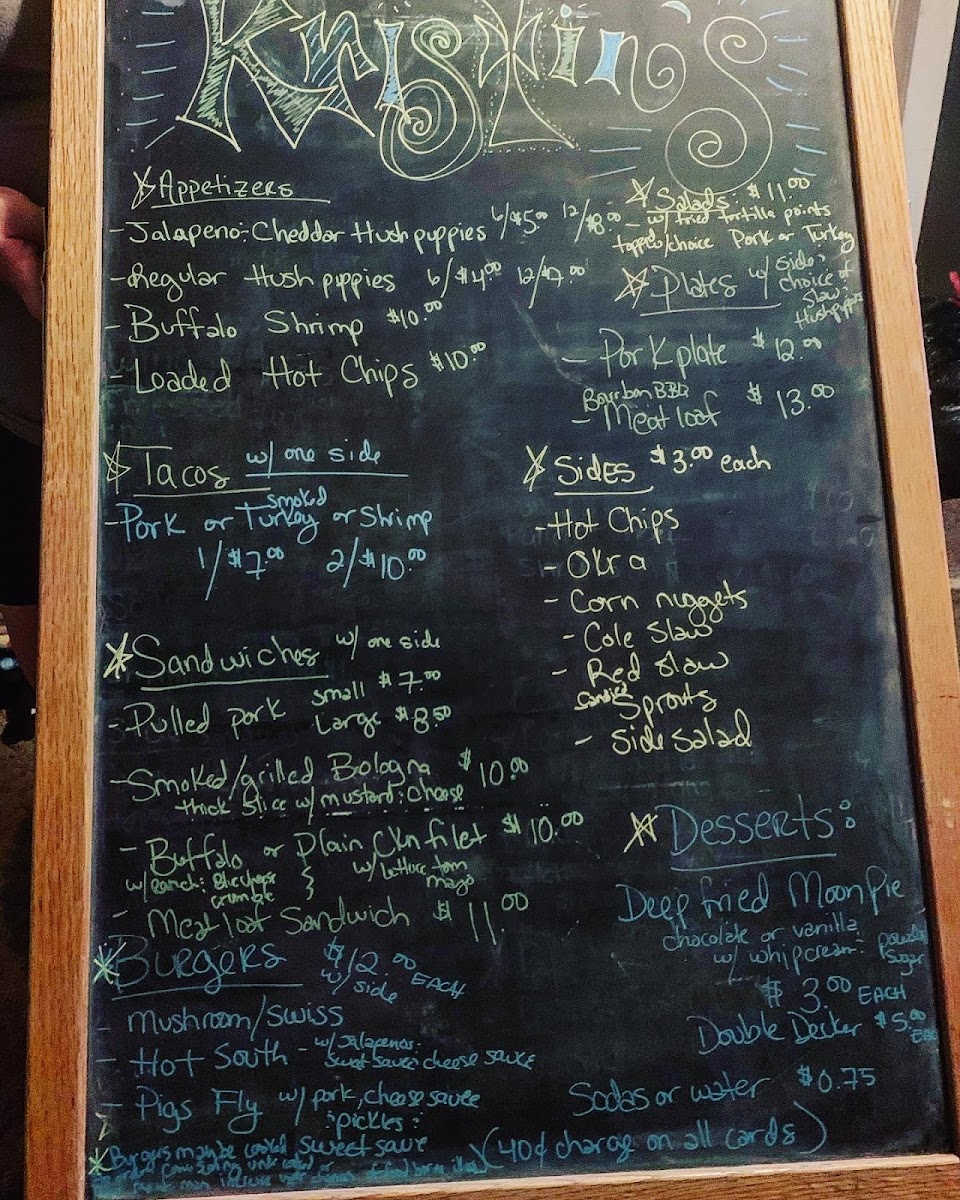 Kristin's
Appetizers
- Jalapeno: Cheddar Hush puppies 6/$5.00 12/$8.00
- Regular Hush puppies 6/$4.00 12/$7.00
- Buffalo Shrimp $10.00
- Loaded Hot Chips $10.00
Tacos w/ one side
- Pork or smoked Turkey or Shrimp
1/$7.00 2/$10.00
Sandwiches w/ one side
- Pulled pork small $7.00
Large $8.50
- Smoked/grilled Bologna $10.00
thick slice w/ mustard: cheese
- Buffalo or Plain Ckn filet $10.00
w/ranch: Bluchees crumble } w/ lettuce tom mayo
- Meat loaf Sandwich $11.00
Burgers $12.00 EACH
w/ side
- Mushroom/Swiss
- Hot South - w/ Jalapenos:
sweet sauce: cheese sauce
- Pigs Fly w/ pork, cheese sauce
:pickles:
sweet sauce
Burgers may be cooked
Salads: $11.00
- w/ fried tortilla points
topped/choice Pork or Turkey
Plates w/ side:
choice of
slaw:
Hushpuppies
- Pork plate $12.00
Bourbon BBQ
- Meat loaf $13.00
Sides $3.00 each
- Hot Chips
- Okra
- Corn nuggets
- Cole Slaw
- Red Slaw
candied Sprouts
- Side Salad
Desserts:
Deep fried Moon Pie
chocolate or vanilla
w/ whipcream: powder sugar
$3.00 EACH
Double Decker $5.00 EACH
Sodas or water $0.75
(40¢ charge on all cards)